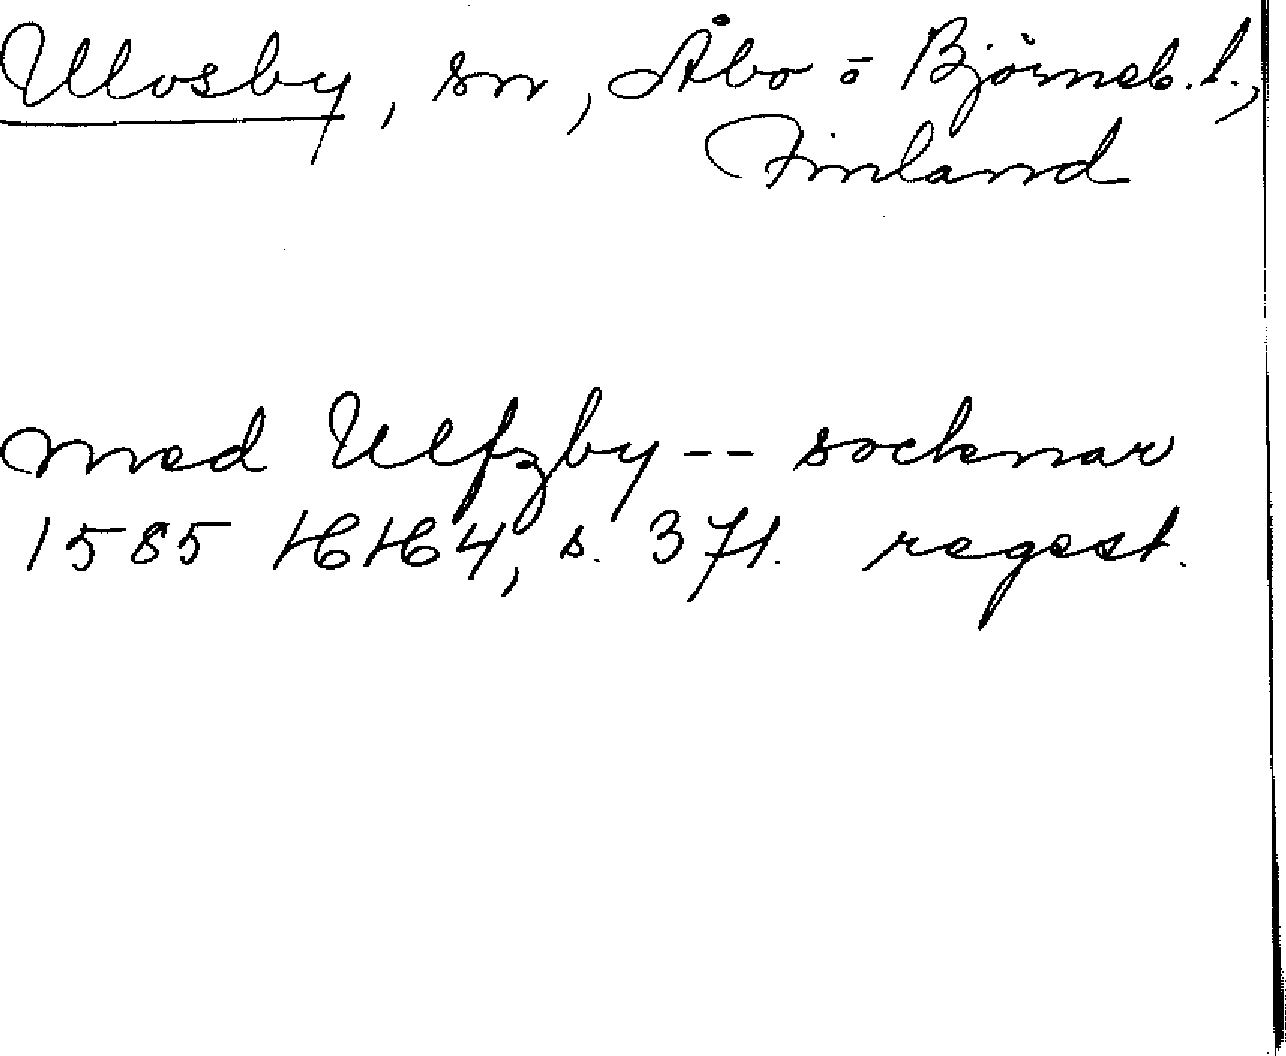 Ulvsby, sn, Åbo o Björneb. l.,
Finland
med Ulfzby -- socknar
1585 HH 4, s. 371. regest.